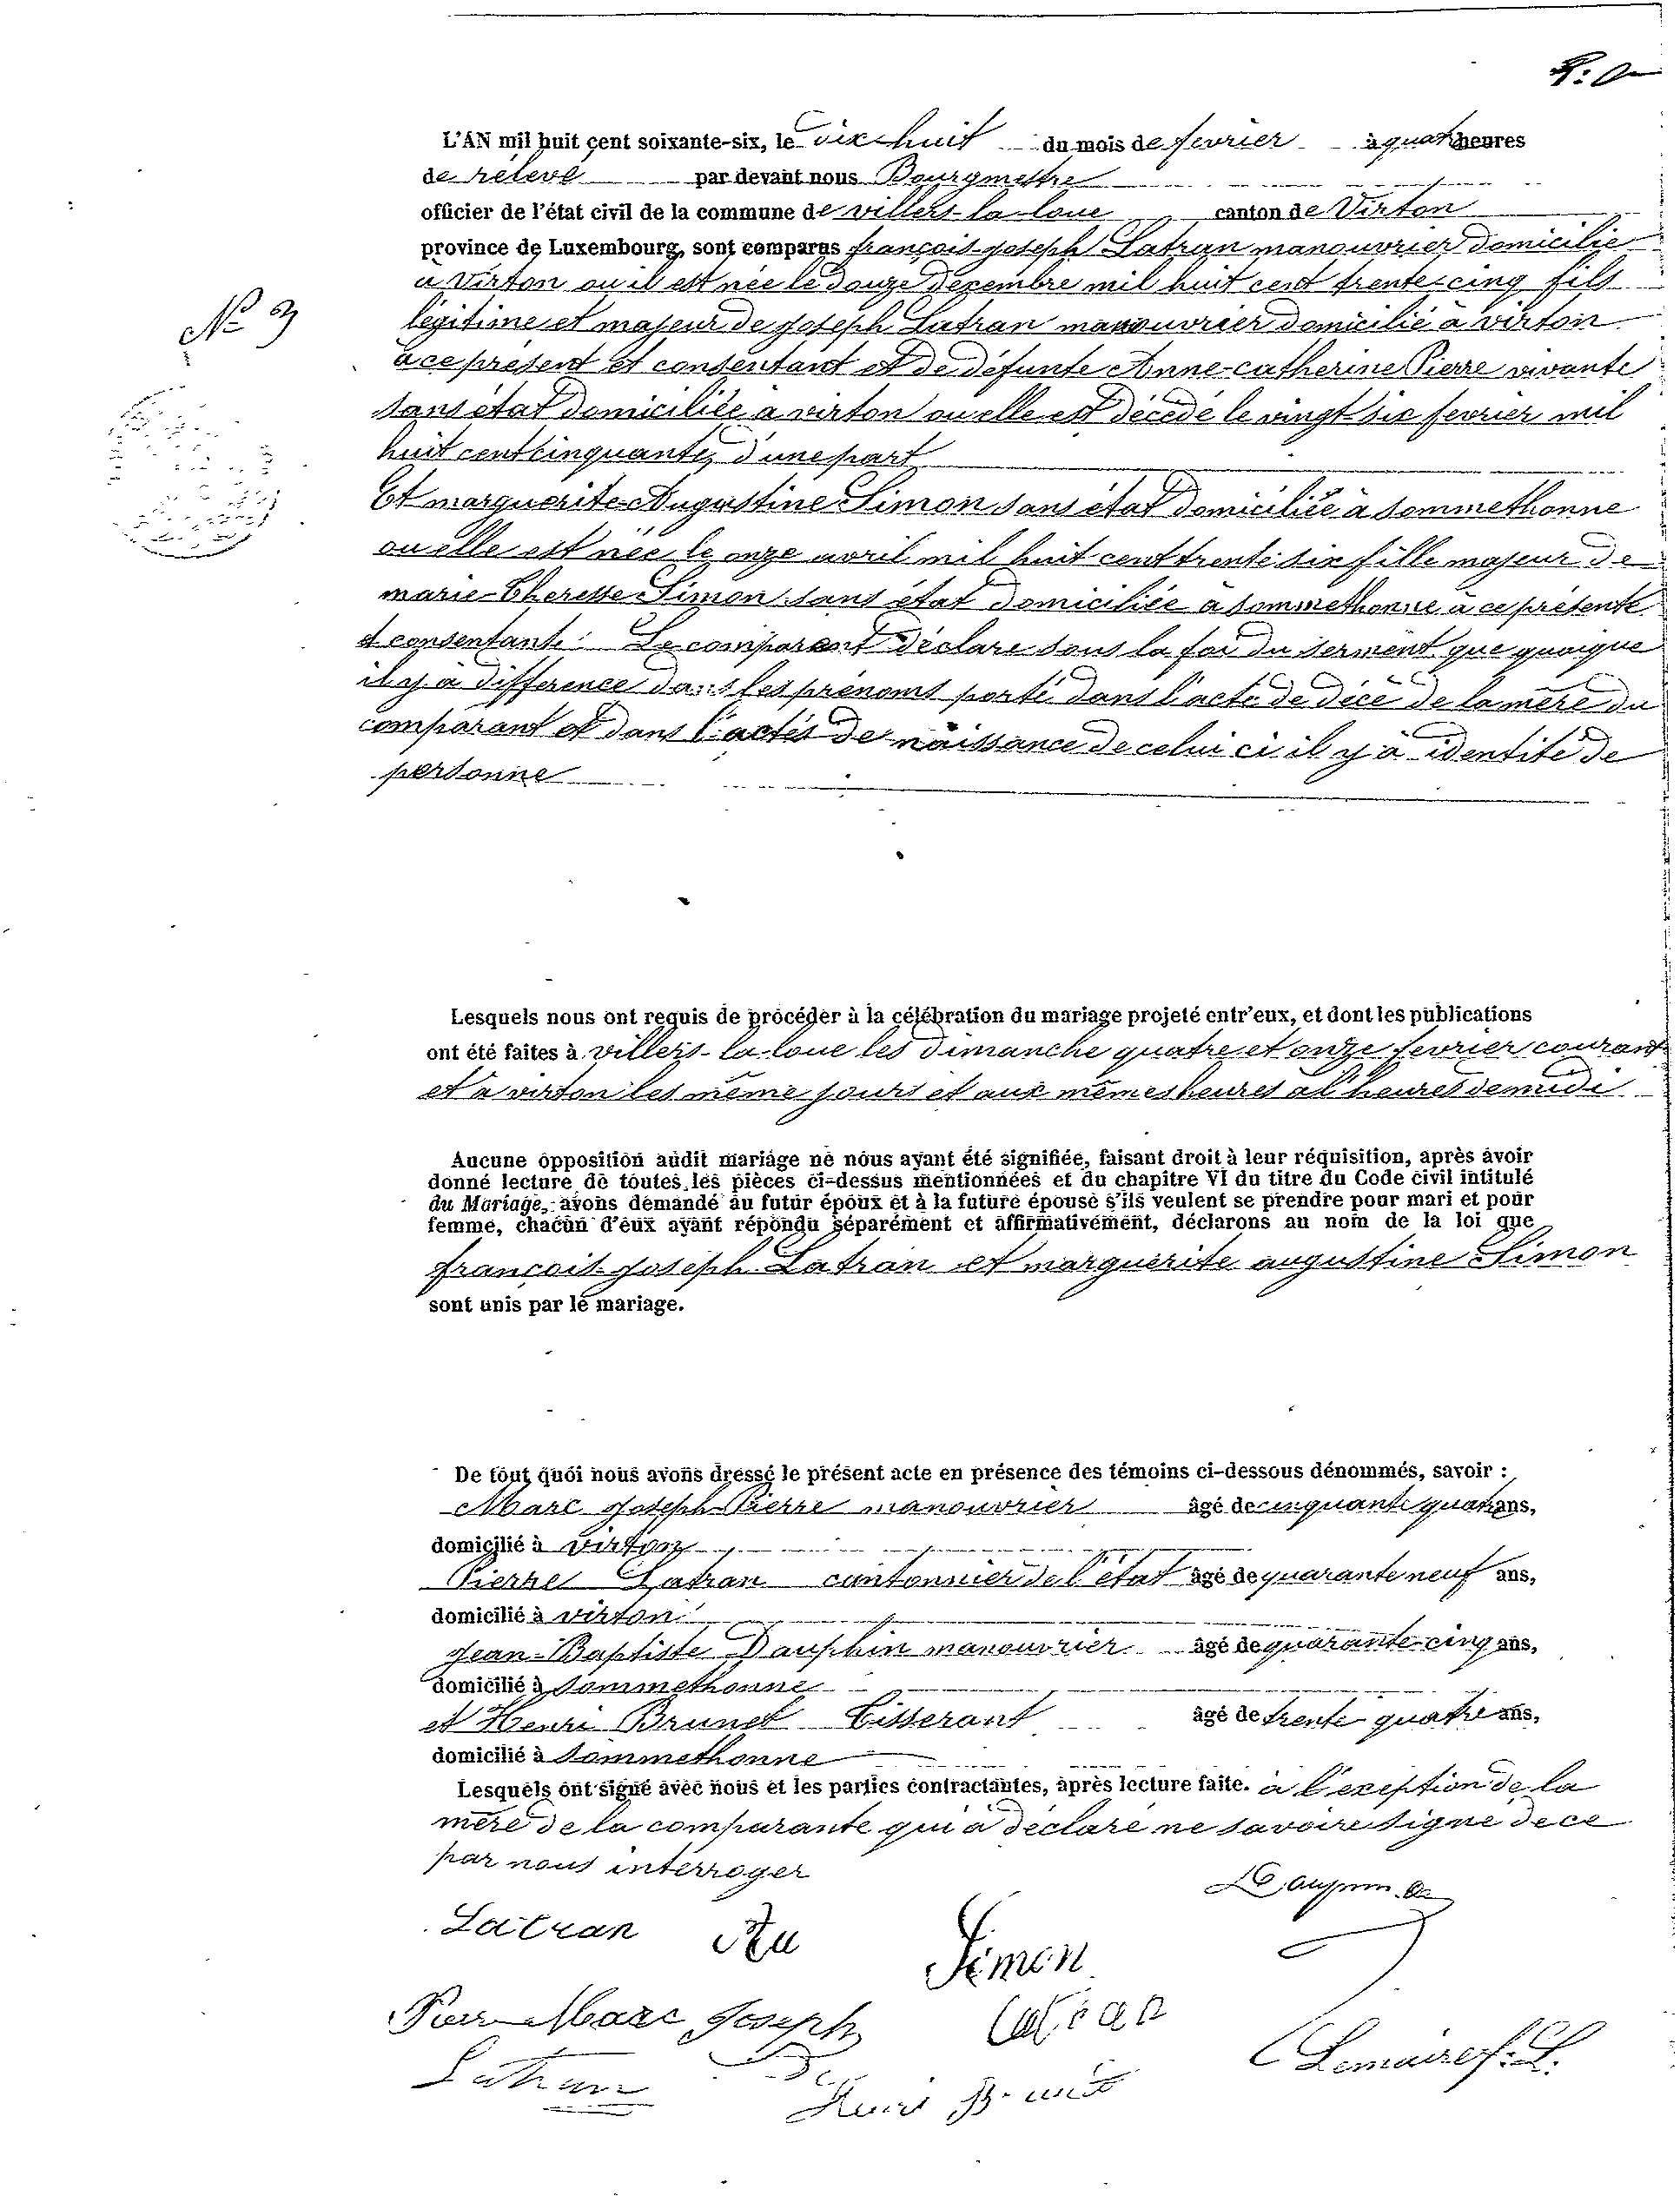 L'AN mil huit cent soixante-six, le dix huit du mois de fevrier à quatre heures
de relevé par devant nous Bourgmestre
officier de l'état civil de la commune de villers-la-loue canton de Virton
province de Luxembourg, sont comparus françois-joseph Latran manouvrier domicilié
à virton ou il est née le douze decembre mil huit cent trente-cinq fils
légitime et majeur de joseph Latran manouvrier domicilié à virton
à ce présent et consentant et de défunte Anne-catherine Pierre vivante
sans état domiciliée à virton ou elle est décédé le vingt six fevrier mil
N° 3
huit cent cinquante, d'une part
Et marguerite-Augustine Simon sans état domiciliée à sommethonne
ou elle est née le onze avril mil huit cent trente six fille majeur de
marie-Theresse Simon sans état domiciliée à sommethonne à ce présente
et consentante. Le comparant déclare sous la foi du serment que quoique
il y à différence dans les prénoms porté dans l'acte de décé de la mère du
comparant et dans l'actes de naissance de celui ci il y à identité de
personne
Lesquels nous ont requis de procéder à la célébration du mariage projeté entr'eux, et dont les publications
ont été faites à villers-la-loue les dimanche quatre et onze fevrier courant
et à virton les même jours et aux mêmes heures à l'heures de midi
Aucune opposition audit mariage ne nous ayant été signifiée, faisant droit à leur réquisition, après avoir
donné lecture de toutes les pièces ci-dessus mentionnées et du chapitre VI du titre du Code civil intitulé
du Mariage, avons demandé au futur époux et à la future épouse s'ils veulent se prendre pour mari et pour
femme, chacun d'eux ayant répondu séparément et affirmativement, déclarons au nom de la loi que
françois-joseph Latran et marguerite augustine Simon
sont unis par le mariage.
De tout quoi nous avons dressé le présent acte en présence des témoins ci-dessous dénommés, savoir :
Marc joseph Pierre manouvrier âgé de cinquante quatre ans,
domicilié à virton
Pierre Latran cantonnier de l'état âgé de quarante neuf ans,
domicilié à virton
jean-Baptiste Dauphin manouvrier âgé de quarante-cinq ans,
domicilié à sommethonne
et Henri Brunet Tisserant âgé de trente quatre ans,
domicilié à sommethonne
Lesquels ont signé avec nous et les parties contractantes, après lecture faite. à l'exeption de la
mère de la comparante qui à déclaré ne savoire signé de ce
par nous interroger
Latran Simon
Pierre Marc joseph Latran
Latran Henri Brunet Lemaire f. L.